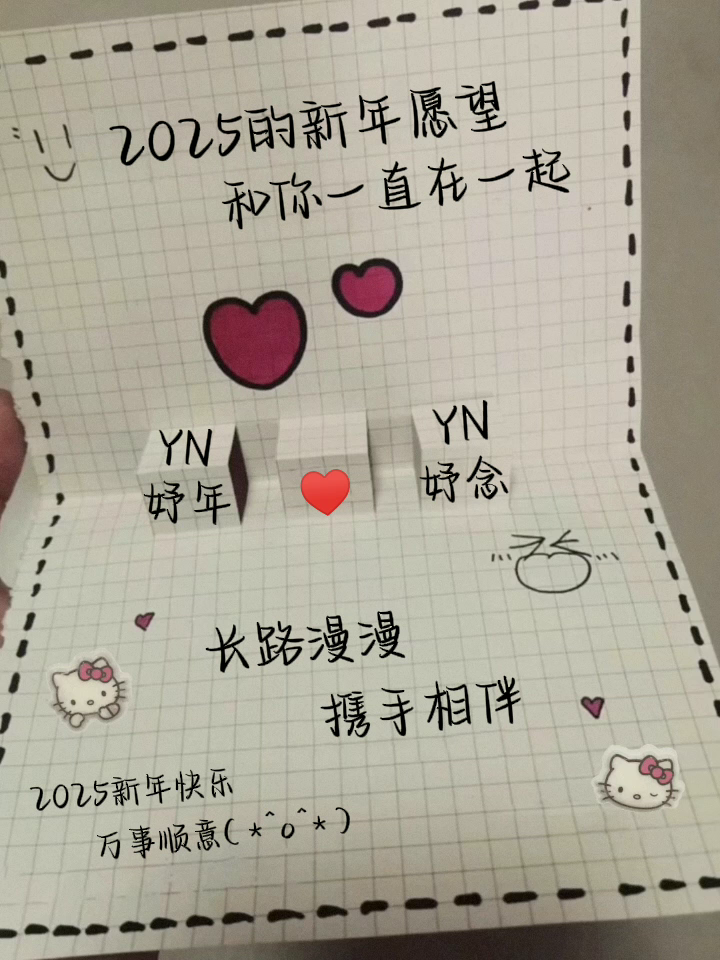 2025的新年愿望
和你一直在一起
YN
妤年
YN
妤念
长路漫漫
携手相伴
2025新年快乐
万事顺意(*^o^*)